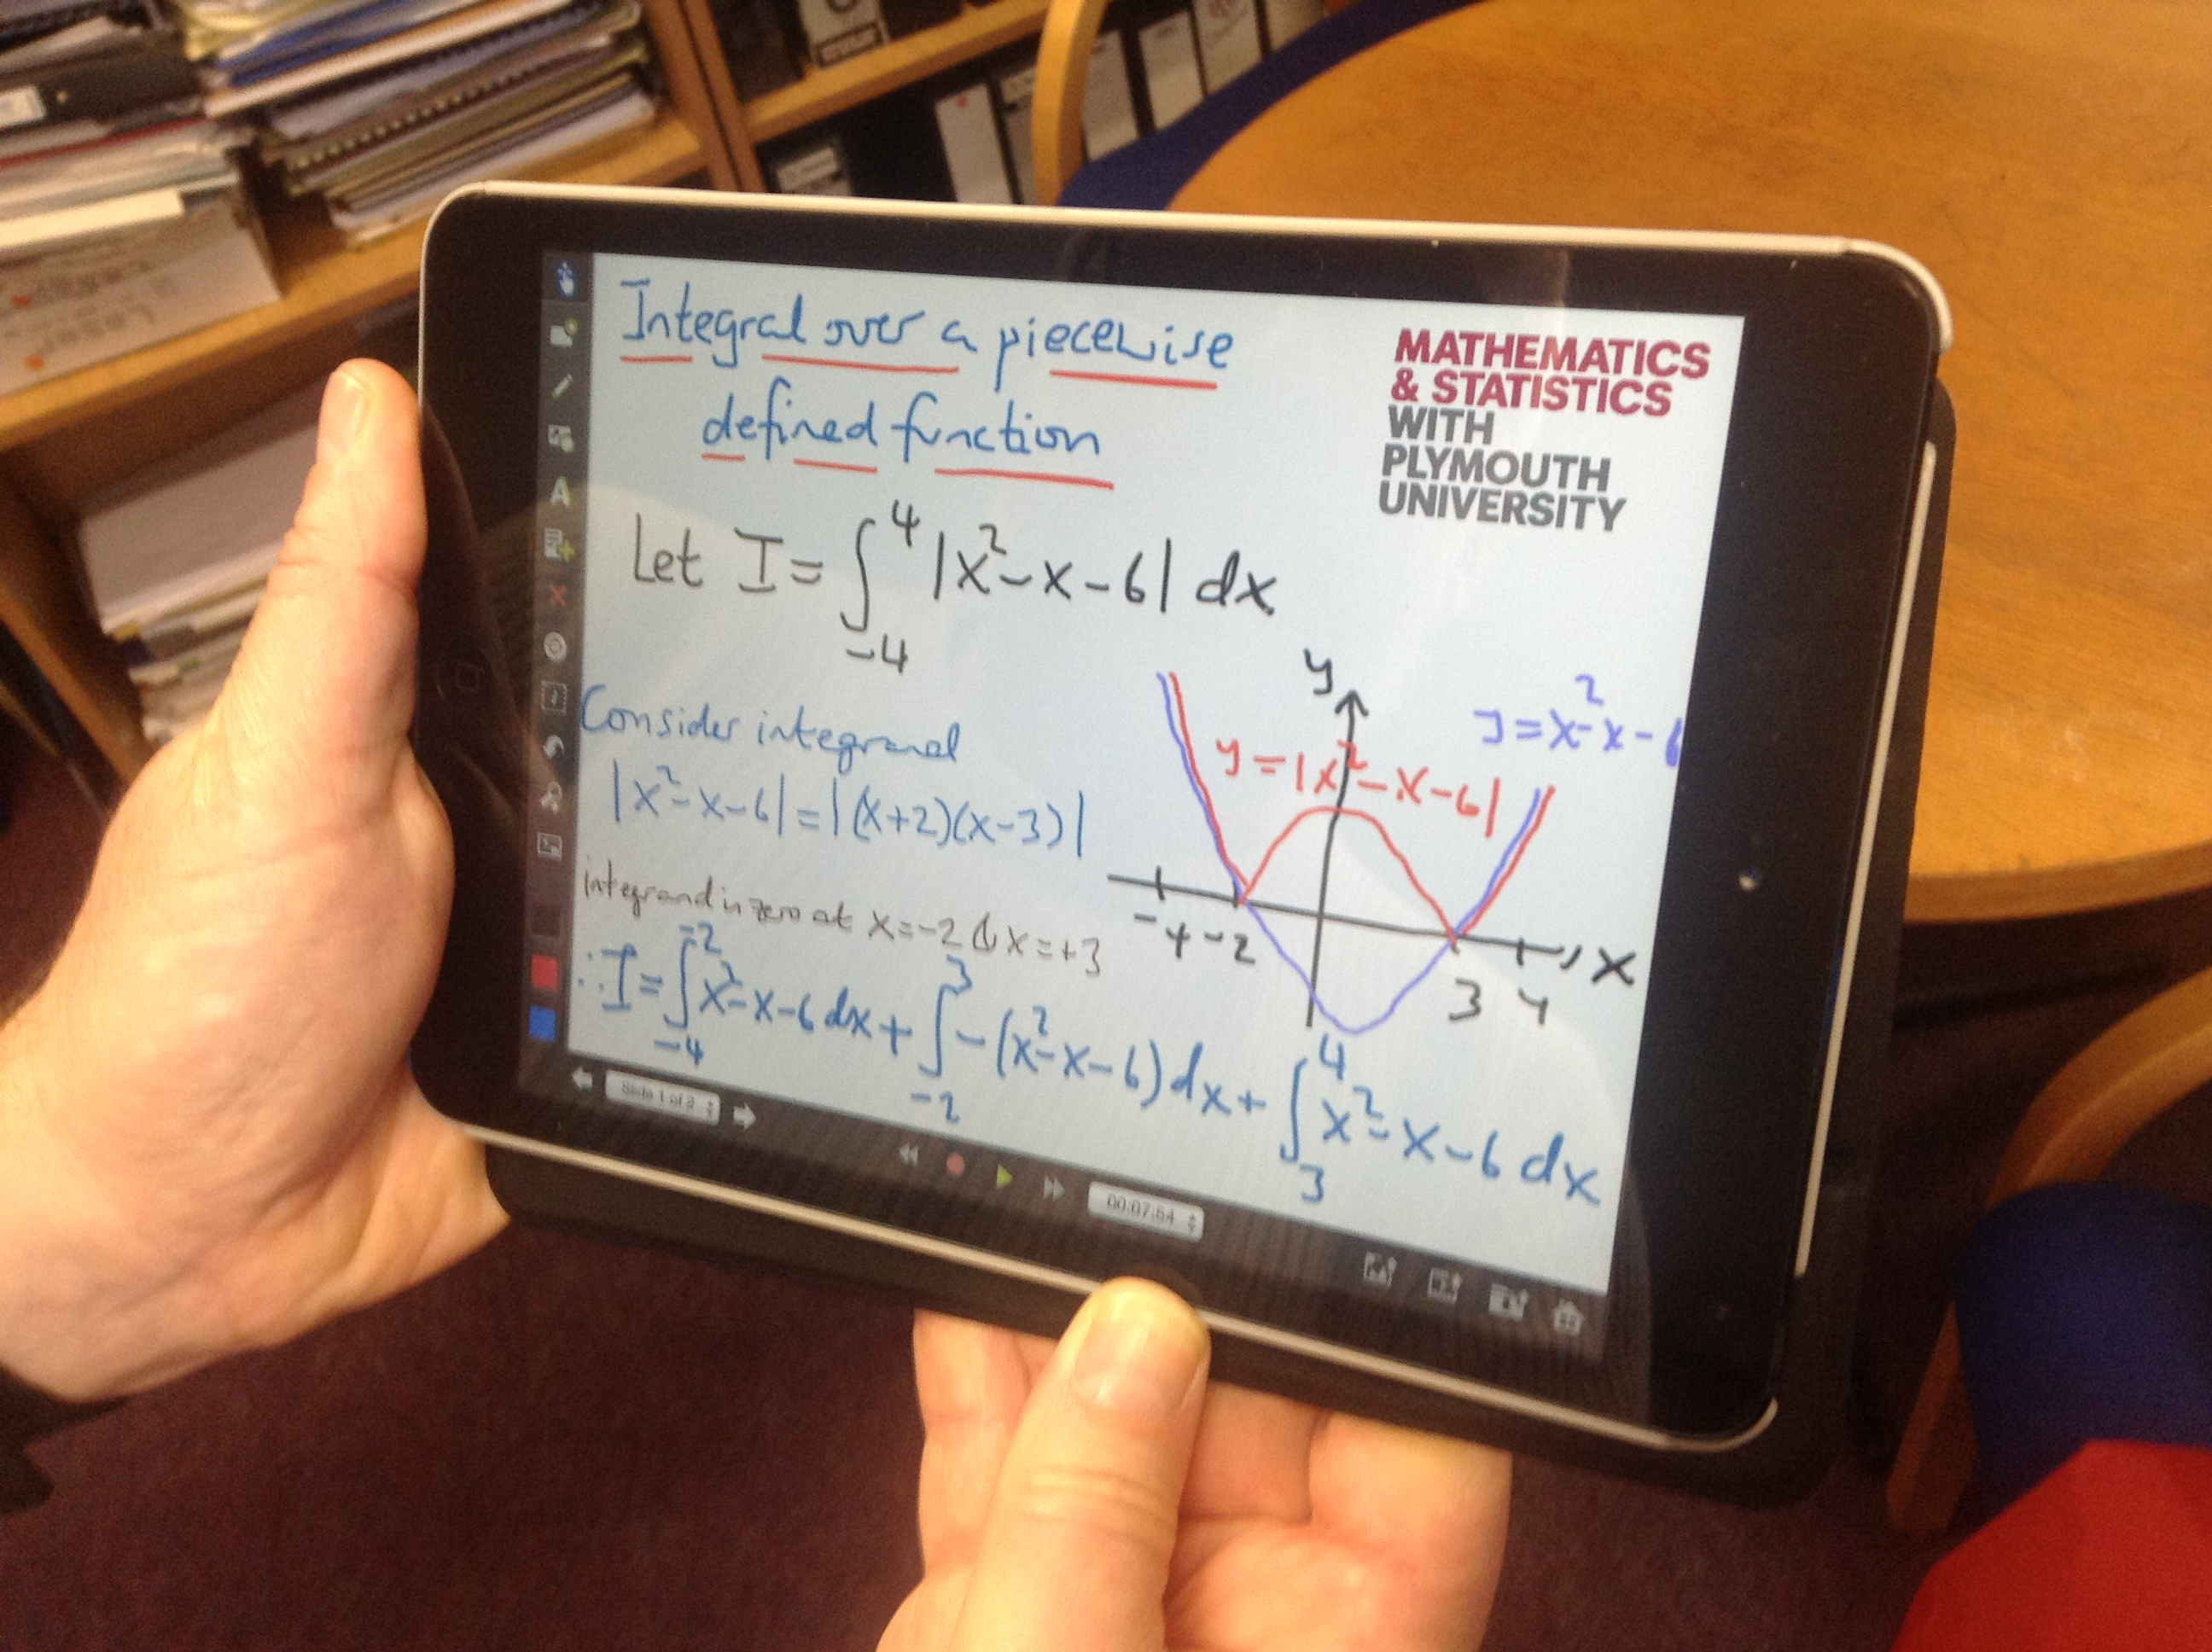 Integral over a piecewise
defined function
MATHEMATICS
& STATISTICS
WITH
PLYMOUTH
UNIVERSITY
Let I = ∫₋₄⁴ |x² - x - 6| dx
Consider integrand
|x² - x - 6| = |(x+2)(x-3)|
integrand is zero at x = -2 & x = +3
∴ I = ∫₋₄⁻² x² - x - 6 dx + ∫₋₂³ -(x² - x - 6) dx + ∫₃⁴ x² - x - 6 dx
y
y = x² - x - 6
y = |x² - x - 6|
-4 -2 3 4 x
A
Slide 1 of 2
00:07:54